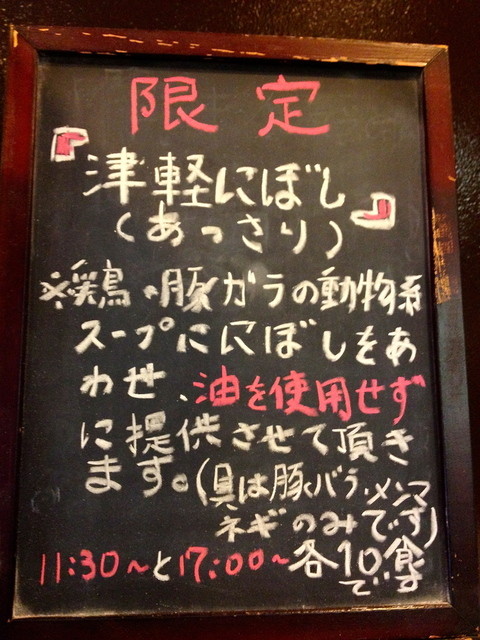 限定
『津軽にぼし
(あっさり)』
※鶏・豚ガラの動物系
スープににぼしをあ
わせ、油を使用せず
に提供させて頂き
ます。(具は豚バラ、メンマ
ネギのみです)
11:30〜と17:00〜各10食
で